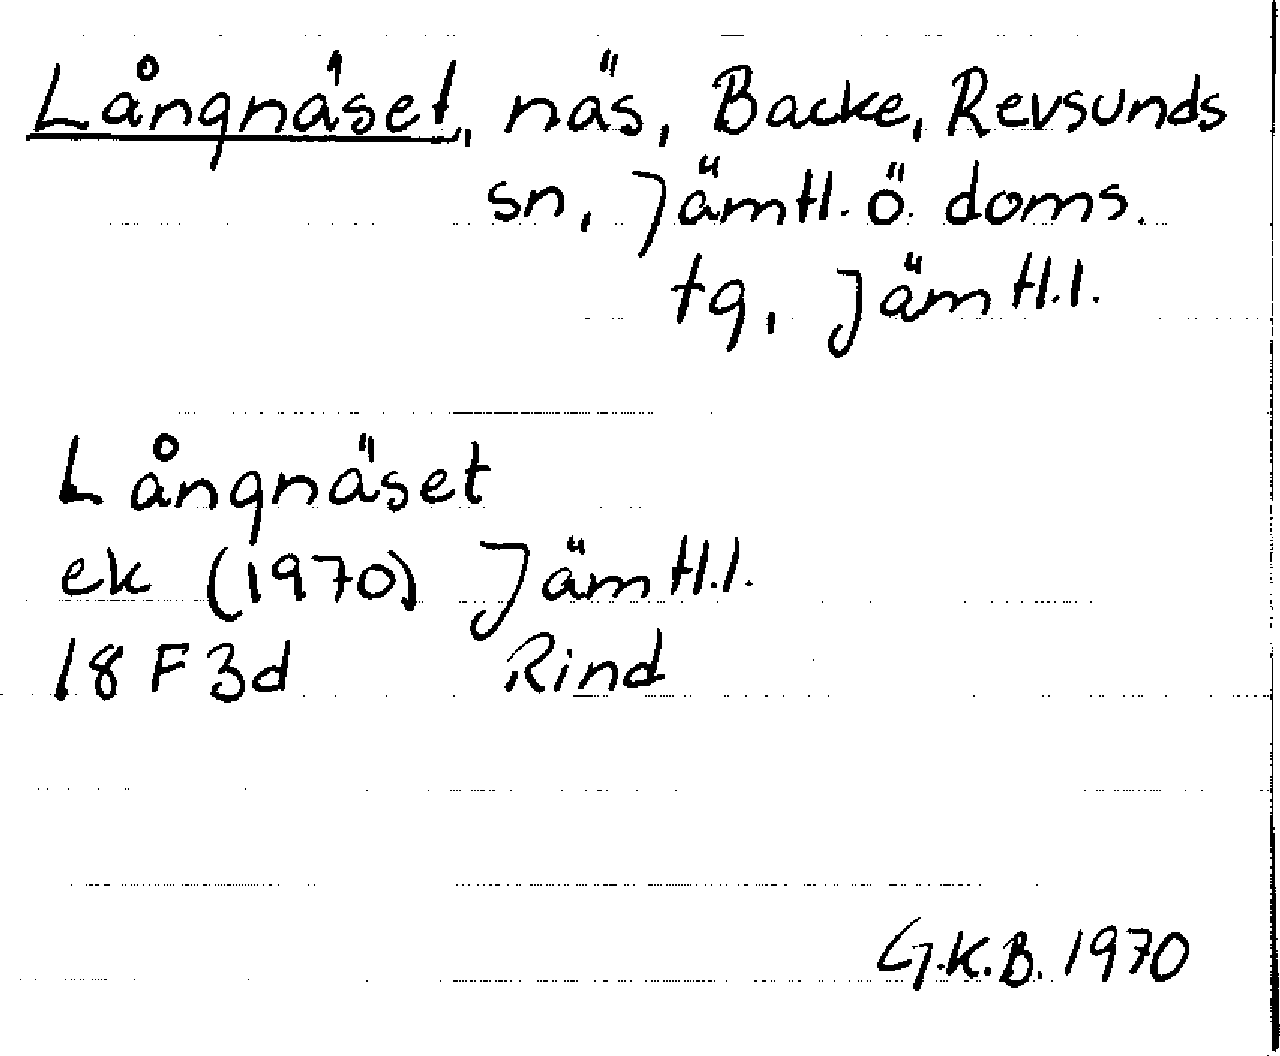 Långnäset, näs, Backe, Revsunds
sn, Jämtl. ö. doms.
tg, Jämtl.l.
Långnäset
ek (1970) Jämtl.l.
18 F 3d Rind
G.K.B. 1970